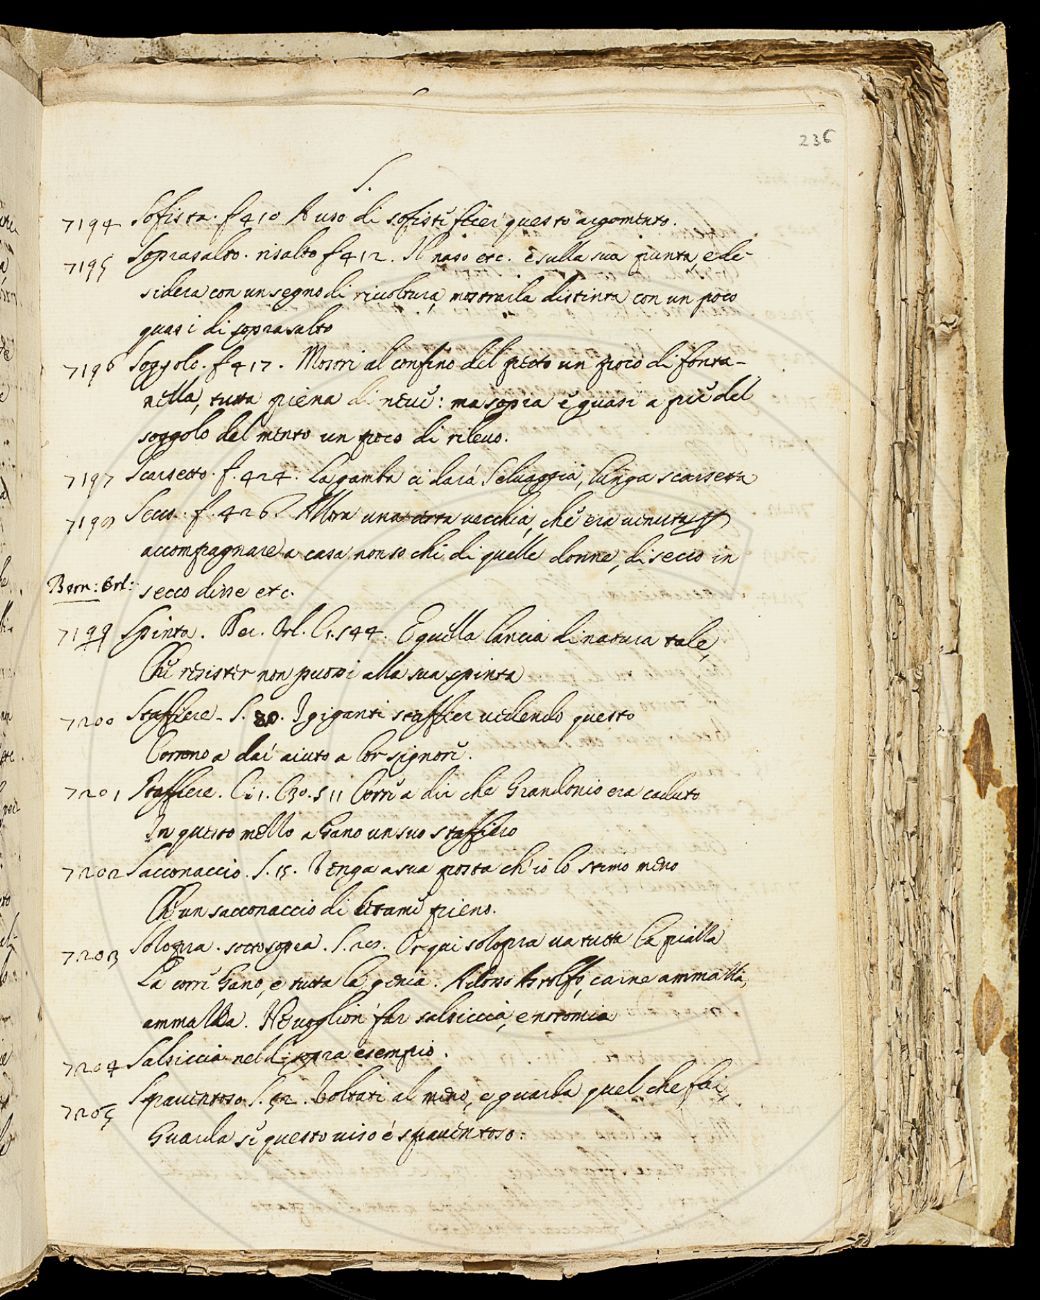 236
S.
7194 Sofista. f. 410 A uso di sofisti ficer questo argomento.
7195 Soprasalto. risalto f 412. Il naso etc. è sulla sua punta, e de-
sidera con un segno di rivoltura, mostrarla distinta con un poco
quasi di soprasalto
7196 Soggolo. f 417. Mostri al confino del petto un poco di fonta-
nella, tutta piena di neve: ma sopra è quasi a piè del
soggolo del mento un poco di rilevo.
7197 Scarsetto. f. 424. La gamba ci darà Selvaggia, lunga scarsetta
7198 Secco. f. 426. Allora una certa vecchia, che era venuta p
accompagnare a casa non so chi di quelle donne, di secco in
Bern: Orl: secco disse etc.
7199 Spinta. Ber. Orl. C1. S 44. E quella lancia di natura tale,
Che resister non puossi alla sua spinta
7200 Staffiere. S. 80. I giganti staffier vedendo questo
Corrono a dar aiuto a lor signori.
7201 Staffiere. C. 1. C 30. S 11 Corre a dir che Grandonio era caduto
In questo mezzo a Gano un suo staffiero
7202 Sacconaccio. S. 15. Venga a sua posta ch'io lo stimo meno
Ch'un sacconaccio di letame pieno.
7203 Solopra. sottosopra. S. Or qui solopra va tutta la pialla
La corre Gano, e tutta la genia. Astolfo, carne ammazza,
ammazza. Ne voglion far salsiccia, e notomia
7204 Salsiccia nel di sopra esempio.
7205 Spaventoso. S. 52. Voltati al meno, e guarda quel che fai,
Guarda se questo viso è spaventoso.